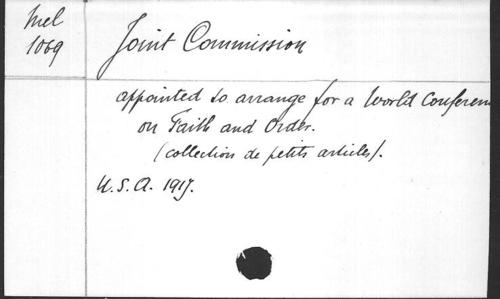 Mel
1069
Joint Commission
appointed to arrange for a World Conferen
on Faith and Order.
(collection de petits articles).
U.S.A. 1917.